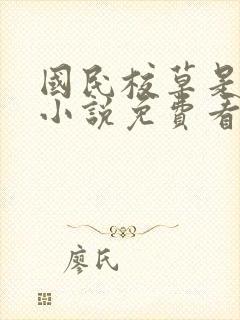 國民校草是
小說免費看
廖氏